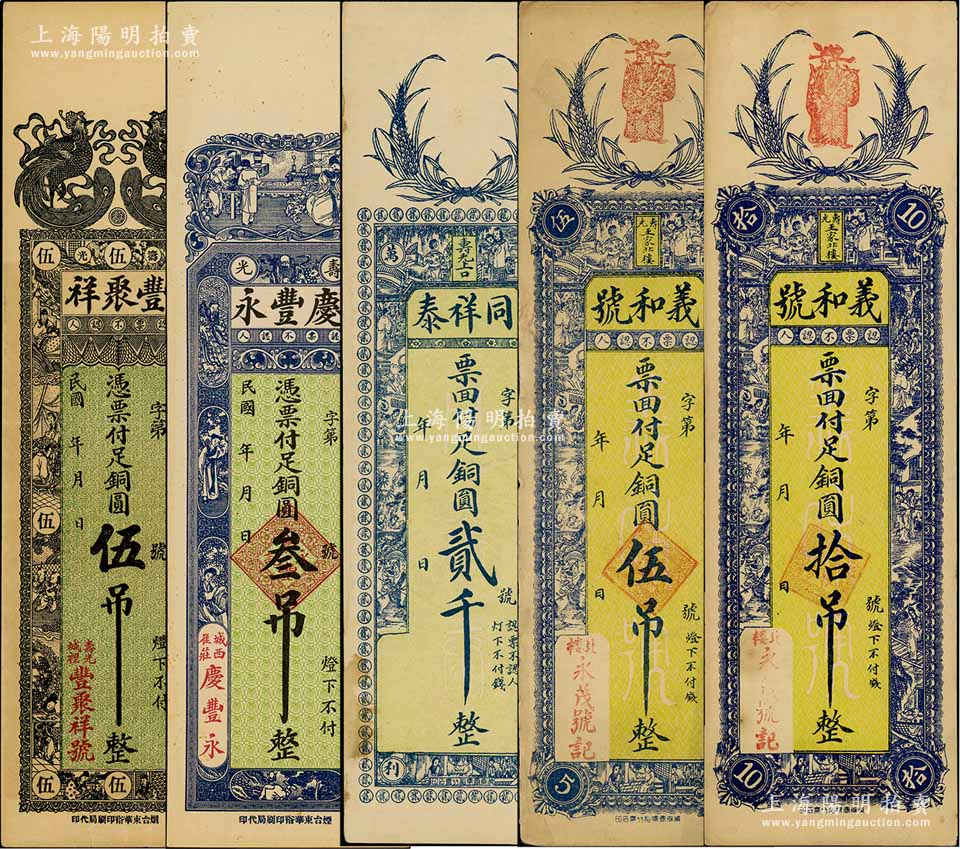 上海陽明拍賣
www.yangmingauction.com
伍 伍
光 壽
祥聚豐
人認不票認
憑票付足銅圓伍吊整
字第
號
燈下不付
民國 年 月 日
壽光城裡
豐聚祥號
伍
伍 伍
烟台東華裕印刷局代印
光 壽
永豐慶
人認不票認
憑票付足銅圓叁吊整
字第
號
燈下不付
民國 年 月 日
城西崔莊
慶豐永
煙台東華裕印刷局代印
萬
泰祥同
票面付足銅圓貳千整
字第
號
認票不認人
灯下不付錢
年 月 日
利
上海陽明拍賣
www.yangmingauction.com
伍
壽光王家北樓
號和義
人認不票認
票面付足銅圓伍吊整
字第
號
燈下不付錢
年 月 日
北樓
永茂號記
5
拾 10
壽光王家北樓
號和義
人認不票認
票面付足銅圓拾吊整
字第
號
燈下不付錢
年 月 日
北樓
號記
10 拾
上海陽明拍賣
www.yangmingauction.com